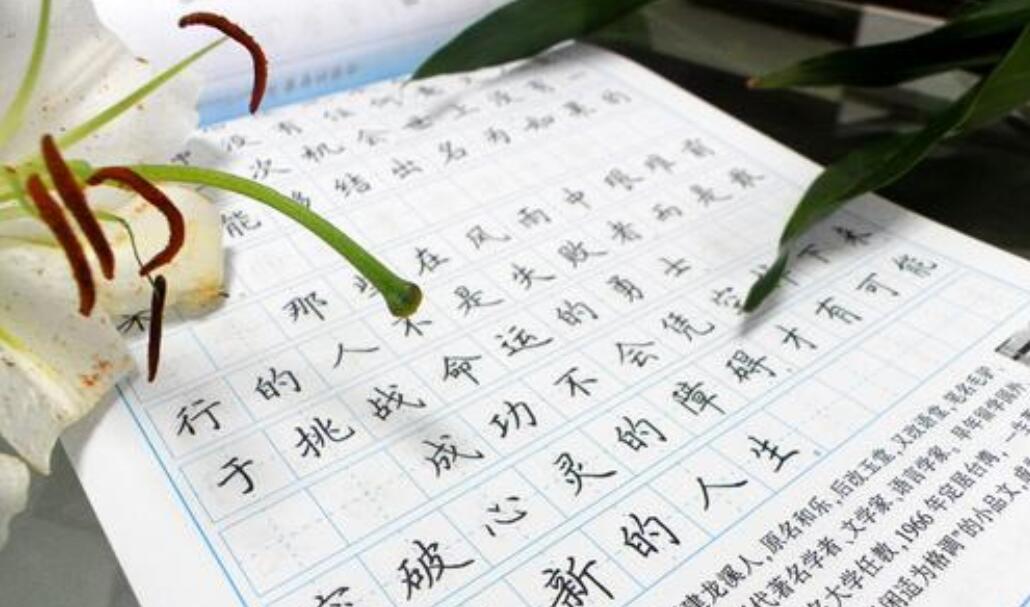 没有
次机会世上没有一
能够结出名为如果的
那些在风雨中艰难前
行的人不是失败者而是敢
于挑战命运的勇士
成功不会凭空掉下来
破心灵的障碍才有可能
新的人生
建龙溪人,原名和乐,后改玉堂,又改语堂,笔名毛驴、
代著名学者、文学家、语言学家。早年留学国外,
名大学任教,1966年定居台湾,一生
闲适为格调"的小品文,